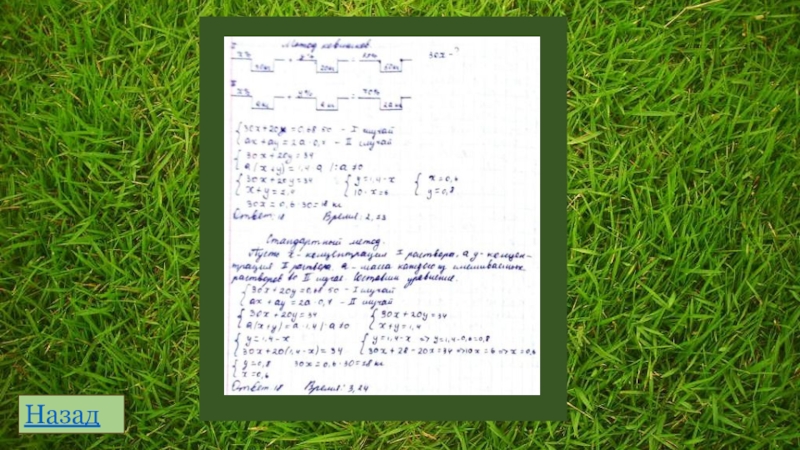 I Метод ковшиков.
30x - ?
30кг + 20кг = 50кг
II
{ 30x+20y = 0,68·50 - I случай
ax + ay = 2a·0,7 - II случай
{ 30x+20y=34
a(x+y)=1,4·a |:a≠0
{ 30x+20y=34 { y=1,4-x { x=0,6
10·x=6 y=0,8
30x = 0,6·30=18 кг
Ответ: 18 Время: 2,23
Стандартный метод.
Пусть x - концентрация I раствора, а y - концен-
трация раствора, a - масса каждого смешиваемых
растворов во II случае. Составим уравнение.
{ 30x+20y=0,68·50 - I случай
ax + ay = 2a·0,7 - II случай
{ 30x+20y=34 { 30x+20y=34
a(x+y)=a·1,4 |:a≠0 x+y=1,4
{ y=1,4-x { y=1,4-x => y=1,4-0,6=0,8
30x+20(1,4-x)=34 30x+28-20x=34 => 10x=6 => x=0,6
{ y=0,8 30x=0,6·30=18 кг
x=0,6
Ответ 18 Время: 3,24
Назад